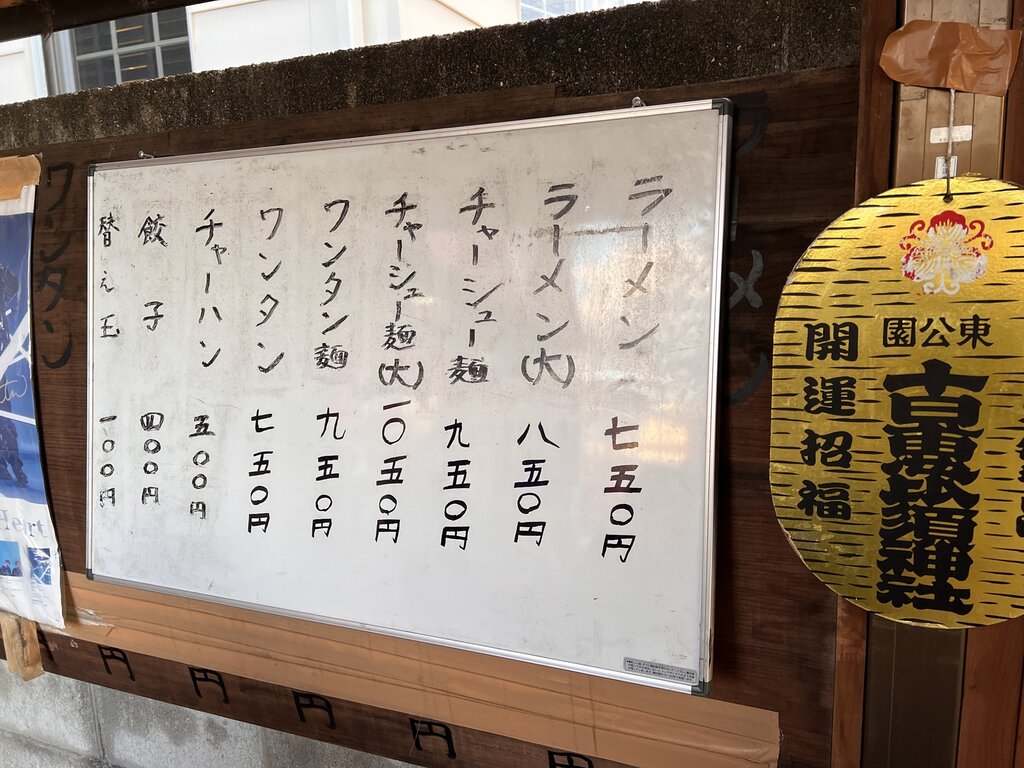 ラーメン 七五〇円
ラーメン(大) 八五〇円
チャーシュー麺 九五〇円
チャーシュー麺(大) 一〇五〇円
ワンタン麺 九五〇円
ワンタン 七五〇円
チャーハン 五〇〇円
餃子 四〇〇円
替え玉 一〇〇円
ワンタン
円
円
円
円
円
東公園
十日恵比須神社
開運招福